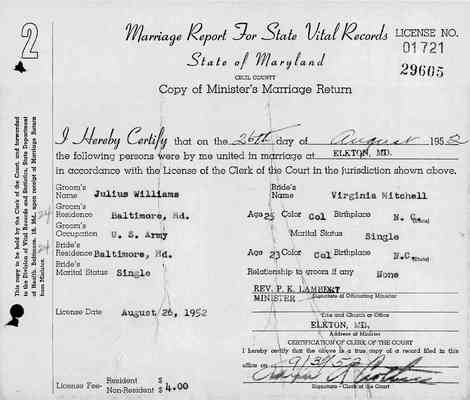 2
Marriage Report For State Vital Records
LICENSE NO.
01721
State of Maryland
29605
CECIL COUNTY
Copy of Minister's Marriage Return
This copy to be held by the Clerk of the Court, and forwarded
to the Division of Vital Records and Statistics, State Department
of Health, Baltimore, 18, Md., upon receipt of Marriage Return
from Minister.
I Hereby Certify that on the 26th day of August 1952
the following persons were by me united in marriage at ELKTON, MD.
in accordance with the License of the Clerk of the Court in the jurisdiction shown above.
Groom's Name Julius Williams
Bride's Name Virginia Mitchell
Groom's Residence Baltimore, Md.
Age 25 Color Col Birthplace N. C. (State)
Groom's Occupation U. S. Army
Marital Status Single
Bride's Residence Baltimore, Md.
Age 23 Color Col Birthplace N.C. (State)
Bride's Marital Status Single
Relationship to groom if any None
REV. P. E. LAMBERT
MINISTER Signature of Officiating Minister
License Date August 26, 1952
Title and Church or Office
ELKTON, MD.
Address of Minister
CERTIFICATION OF CLERK OF THE COURT
I hereby certify that the above is a true copy of a record filed in this
office on 9/3/52
License Fee- Resident $
Non-Resident $4.00
Signature - Clerk of the Court